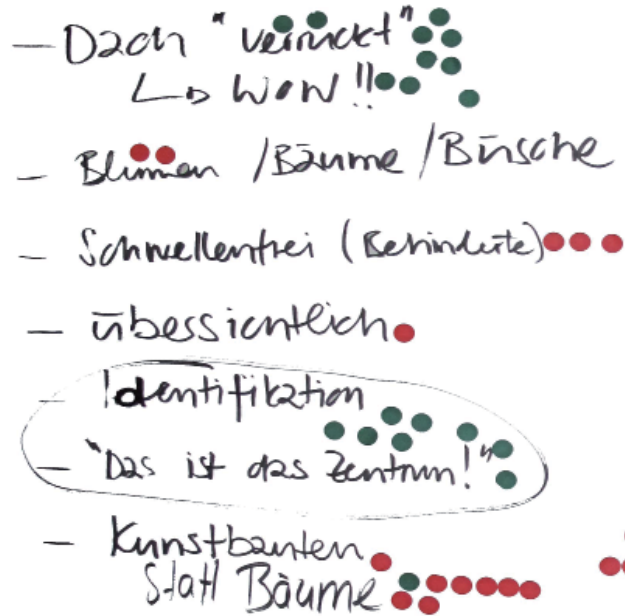 - Dach "verrückt"
↳ WOW!!
- Blumen /Bäume /Büsche
- Schwellenfrei (Behinderte)
- übersichtlich
- Identifikation
- "Das ist das Zentrum!"
- Kunstbauten
statt Bäume